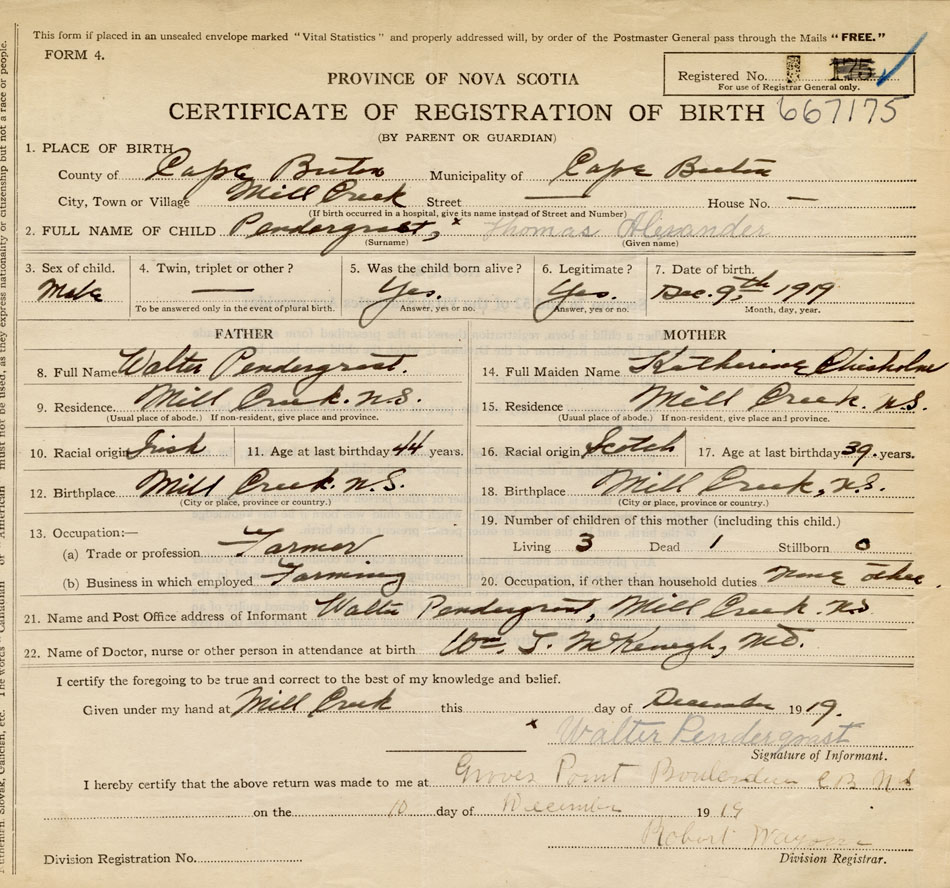 This form if placed in an unsealed envelope marked "Vital Statistics" and properly addressed will, by order of the Postmaster General pass through the Mails "FREE."
FORM 4.
Registered No. 175
For use of Registrar General only.
PROVINCE OF NOVA SCOTIA
CERTIFICATE OF REGISTRATION OF BIRTH 667175
(BY PARENT OR GUARDIAN)
1. PLACE OF BIRTH
County of Cape Breton Municipality of Cape Breton
City, Town or Village Mill Creek Street — House No. —
(If birth occurred in a hospital, give its name instead of Street and Number)
2. FULL NAME OF CHILD Pendergrast, x Thomas Alexander
(Surname) (Given name)
3. Sex of child. 4. Twin, triplet or other? 5. Was the child born alive? 6. Legitimate? 7. Date of birth.
Male — Yes. Yes. Dec. 9th, 1919
To be answered only in the event of plural birth. Answer, yes or no. Answer, yes or no. Month, day, year.
FATHER MOTHER
8. Full Name Walter Pendergrast. 14. Full Maiden Name Katherine Chisholm
9. Residence. Mill Creek. N.S. 15. Residence Mill Creek. N.S.
(Usual place of abode.) If non-resident, give place and province. (Usual place of abode.) If non-resident, give place and province.
10. Racial origin Irish 11. Age at last birthday 44 years. 16. Racial origin Scotch 17. Age at last birthday 39. years.
12. Birthplace Mill Creek. N.S. 18. Birthplace Mill Creek, N.S.
(City or place, province or country.) (City or place, province or country.)
13. Occupation:— 19. Number of children of this mother (including this child.)
(a) Trade or profession Farmer Living 3 Dead 1 Stillborn 0
(b) Business in which employed Farming 20. Occupation, if other than household duties None other.
21. Name and Post Office address of Informant Walter Pendergrast, Mill Creek. N.S
22. Name of Doctor, nurse or other person in attendance at birth Wm. J. McKeough, M.D.
I certify the foregoing to be true and correct to the best of my knowledge and belief.
Given under my hand at Mill Creek this day of December 1919.
x Walter Pendergrast
Signature of Informant.
I hereby certify that the above return was made to me at Groves Point Boularderie C B N S
on the 10 day of December 1919
Robert
Division Registration No. Division Registrar.
must not be used, as they express nationality or citizenship but not a race or people.